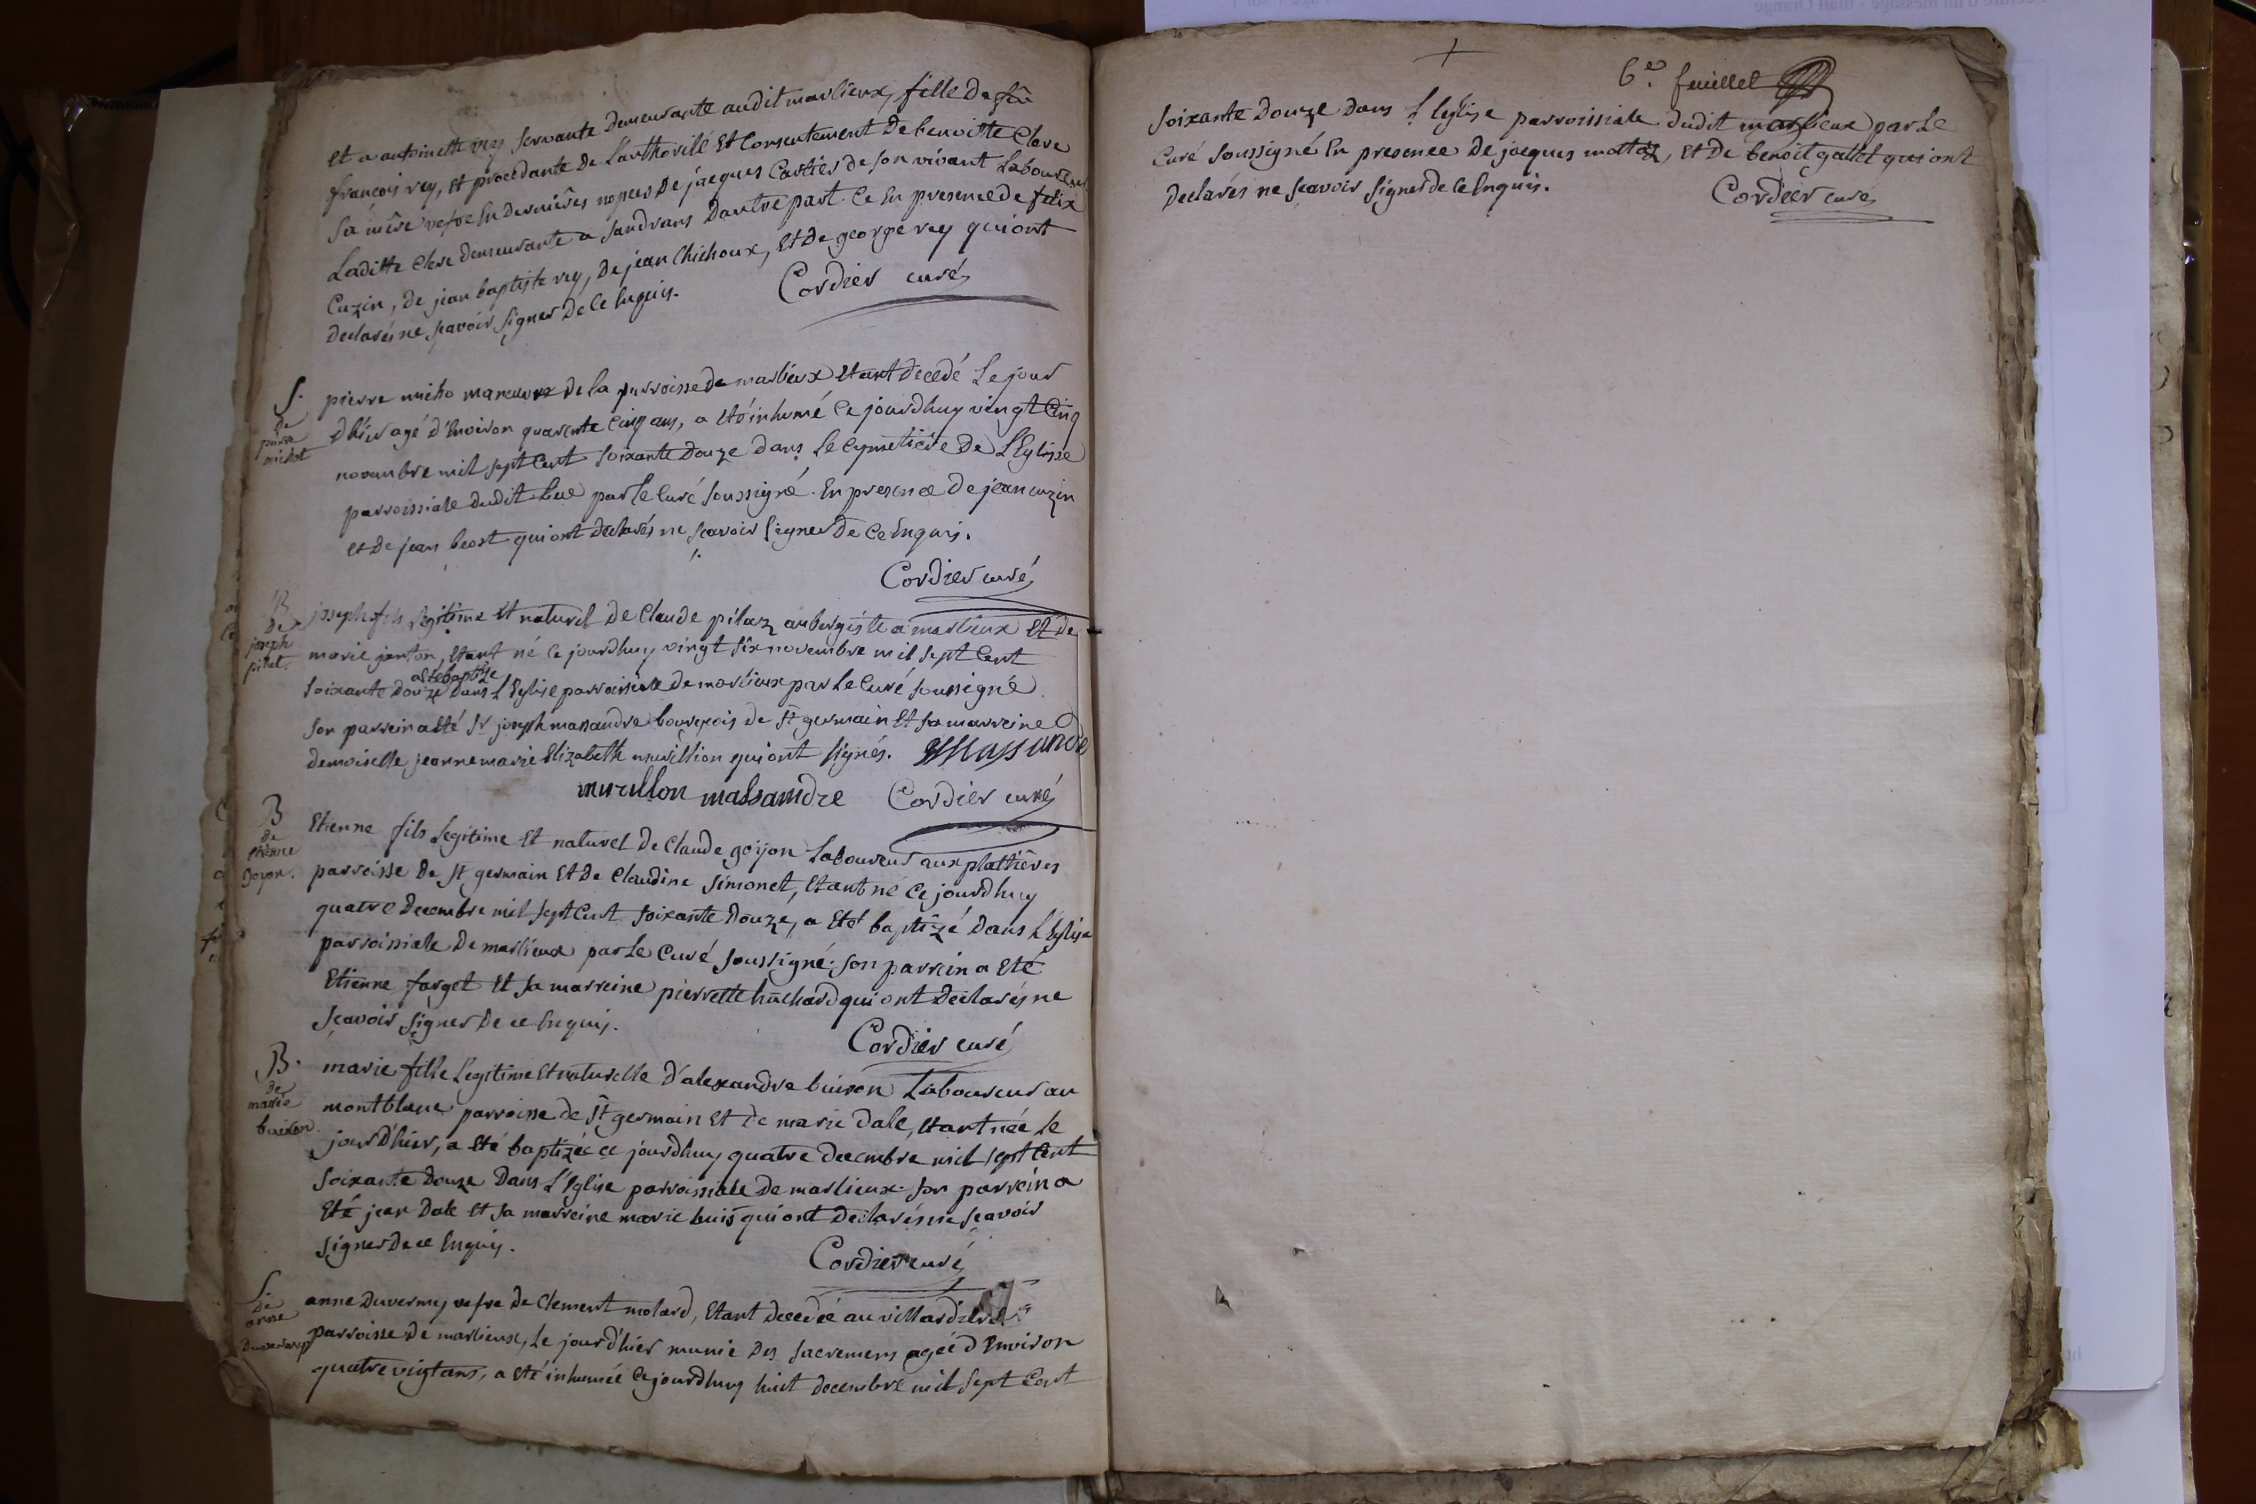 et a antoinette rey servante demeurante audit marlieux, fille de feû
françois rey, et procedante de L'authorité et Consentement de benoitte Clere
sa mère vefve en dernières nopces de jacques Cartier de son vivant Laboureur
Laditte Clere demeurante a sandrans D'autre part. Ce en presence de felix
Cuzin, de jean baptiste rey, de jean Chichoux, et de george rey qui ont
declarés ne scavoir signer de ce Enquis. Cordier curé
S. de pierre michot
pierre micho manœuvre de la parroisse de marlieux etant decedé Le jour
d'hier agé d'Environ quarente Cinq ans, a eté inhumé Ce jourdhuy vingt Cinq
novembre mil sept Cent soixante douze dans le Cymetière de L'Eglise
parroissiale dudit Lieu par le Curé soussigné. En presence de jean cuzin
et de jean beost qui ont declarés ne scavoir signer de Ce Enquis.
Cordier curé
B de joseph pilat.
joseph fils Legitime et naturel de Claude pilaz aubergiste a marlieux et de
marie janton, etant né Ce jourdhuy vingt six novembre mil sept Cent
a eté baptizé
soixante douze dans L'Eglise parroissiale de marlieux par Le Curé soussigné.
son parrein a eté sr joseph massandre bourgeois de st germain et sa marreine
demoiselle jeanne marie Elizabeth murillion qui ont signés. Massandre
murillon massandre Cordier curé
B de etienne goyon.
Etienne fils Legitime et naturel de Claude goyon Laboureur aux plattières
parroisse de st germain et de Claudine simonet, etant né Ce jourdhuy
quatre decembre mil sept Cent soixante douze, a eté baptizé dans L'Eglise
parroissiale de marlieux par Le Curé soussigné. son parrein a eté
Etienne farget et sa marreine pierrette huchard qui ont declarés ne
scavoir signer de ce Enquis.
Cordier curé
B. de marie buiron.
marie fille Legitime et naturelle d'alexandre buiron Laboureur au
montblanc parroisse de st germain et de marie dale, etant née le
jour d'hier, a eté baptizée ce jourdhuy quatre decembre mil sept Cent
soixante douze dans L'Eglise parroissiale de marlieux. son parrein a
eté jean dale et sa marreine marie buis qui ont declarés ne scavoir
signer de ce Enquis.
Cordier curé
S. de anne Duvernay
anne Duvernay vefve de Clement molard, etant decedée au villard
parroisse de marlieux, Le jour d'hier munie des sacremens agée d'Environ
quatre vigt ans, a eté inhumée Ce jourdhuy huit decembre mil sept Cent
6e. feuillet
soixante douze dans L'Eglise parroissiale dudit marlieux par Le
Curé soussigné En presence de jacques mottaz, et de benoit gallet qui ont
declarés ne scavoir signer de ce Enquis.
Cordier curé